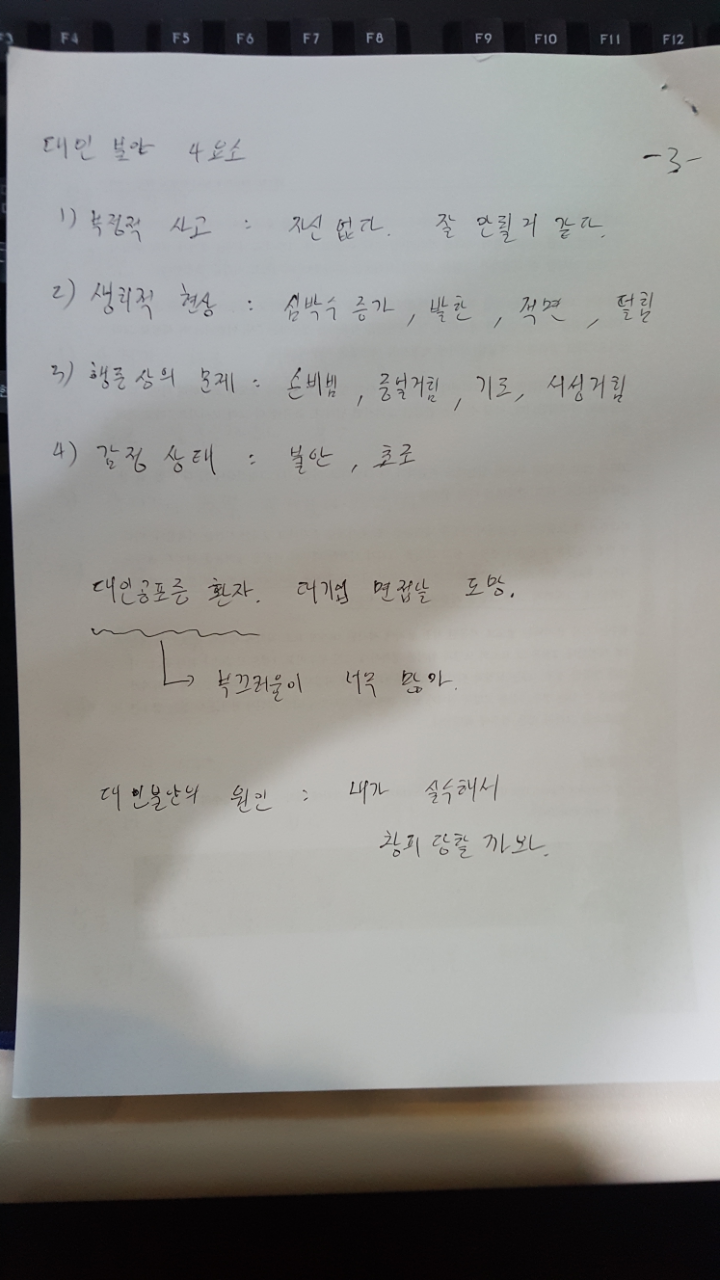 F3 F4 F5 F6 F7 F8 F9 F10 F11 F12
대인 불안 4요소
-3-
1) 부정적 사고 : 자신 없다. 잘 안될거 같다.
2) 생리적 현상 : 심박수 증가, 발한, 적면, 떨림
3) 행동상의 문제 : 손비빔, 중얼거림, 기도, 서성거림
4) 감정 상태 : 불안, 초조
대인공포증 환자. 대기업 면접날 도망.
부끄러움이 너무 많아.
대인불안의 원인 : 내가 실수해서
창피 당할 까봐.